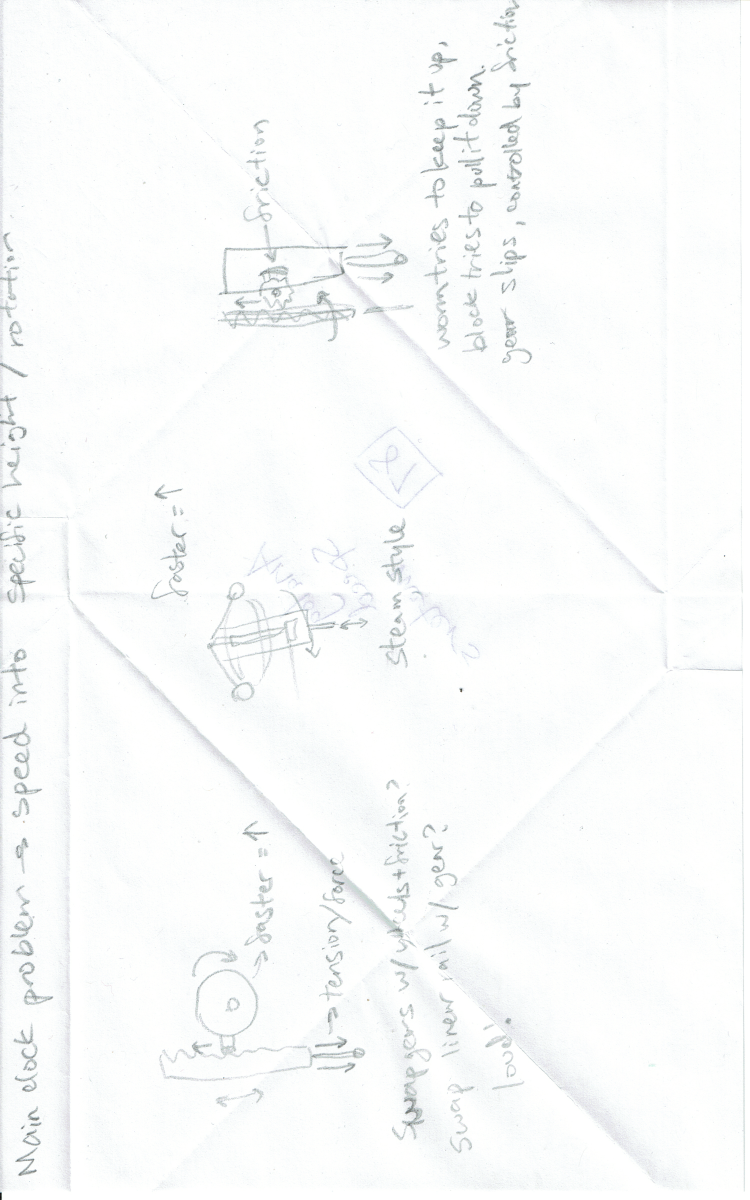 Main clock problem → speed into specific height / rotation
→ faster = ↑
→ tension/force
Swap gears w/ wheels + friction?
Swap linear rail w/ gear?
loud!
faster = ↑
Steam style
friction
worm tries to keep it up,
block tries to pull it down.
gear slips, controlled by friction